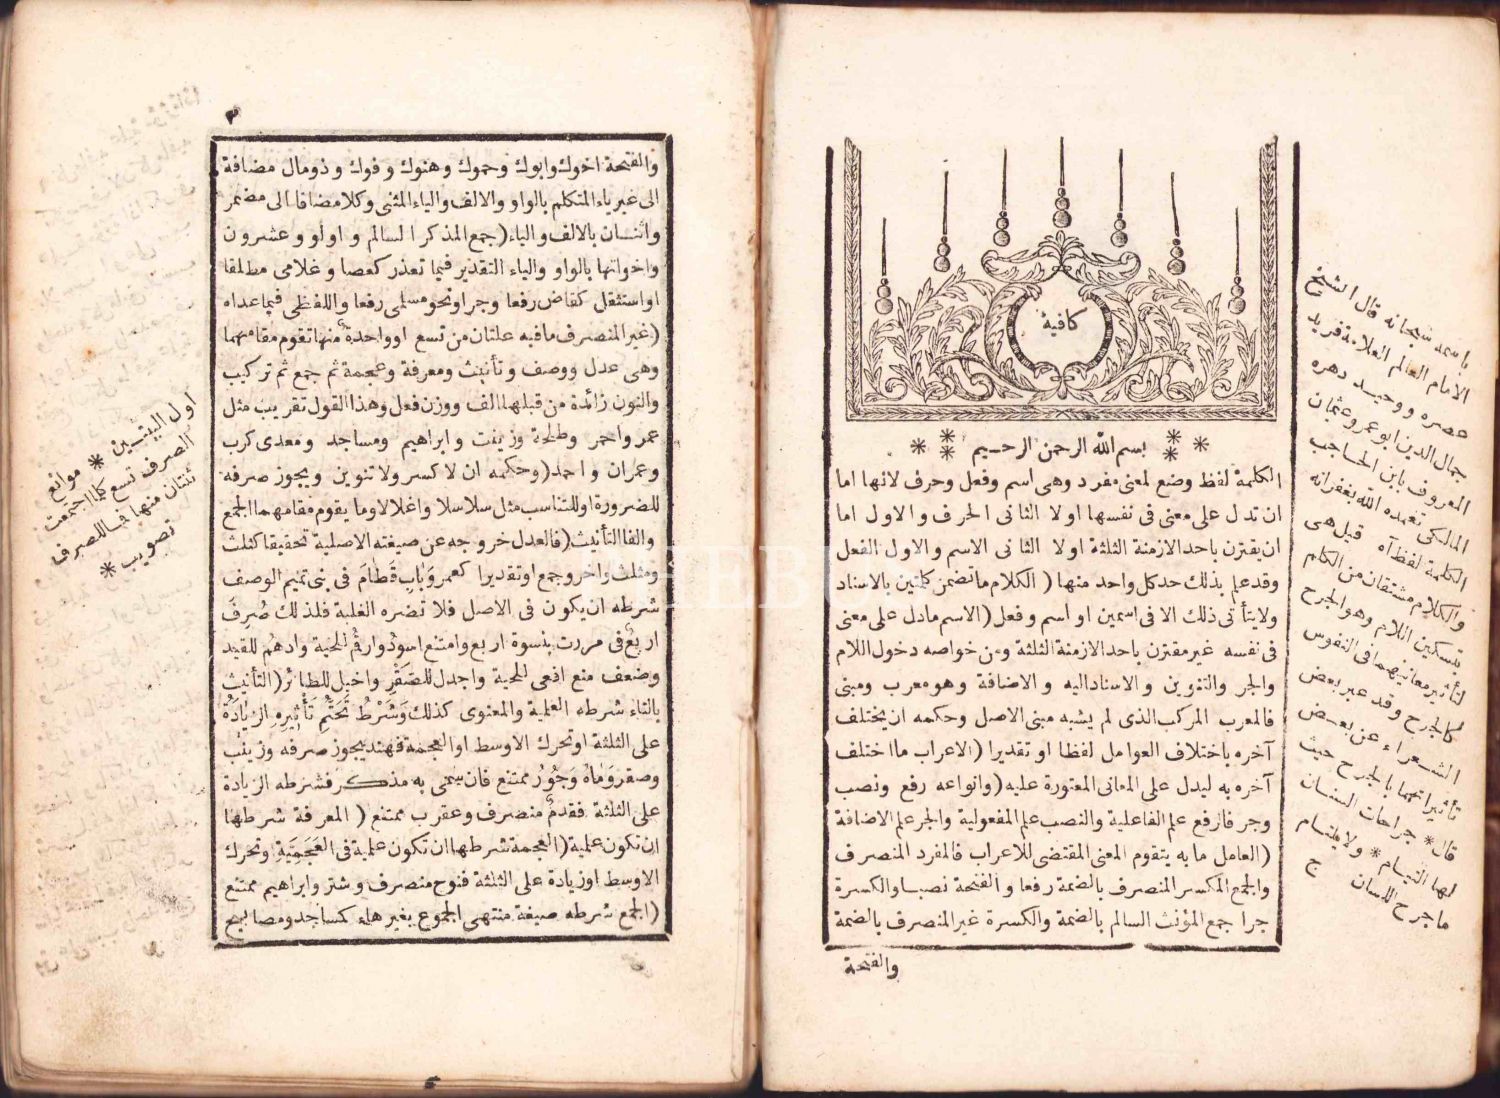 كافية
بسم الله الرحمن الرحيم
الكلمة لفظ وضع لمعنى مفرد وهى اسم وفعل وحرف لانها اما
ان تدل على معنى فى نفسها او لا الثانى الحرف والاول اما
ان يقترن باحد الازمنة الثلثة اولا الثانى الاسم والاول الفعل
وقد علم بذلك حد كل واحد منها ( الكلام ما تضمن كلمتين بالاسناد
ولا يتأتى ذلك الا فى اسمين او اسم وفعل ( الاسم ما دل على معنى
فى نفسه غير مقترن باحد الازمنة الثلثة ومن خواصه دخول اللام
والجر والتنوين والاسناد اليه والاضافة وهو معرب ومبنى
فالمعرب المركب الذى لم يشبه مبنى الاصل وحكمه ان يختلف
آخره باختلاف العوامل لفظا او تقديرا ( الاعراب ما اختلف
آخره به ليدل على المعانى المعتورة عليه ( وانواعه رفع ونصب
وجر فالرفع علم الفاعلية والنصب علم المفعولية والجر علم الاضافة
( العامل ما به يتقوم المعنى المقتضى للاعراب فالمفرد المنصرف
والجمع المكسر المنصرف بالضمة رفعا والفتحة نصبا والكسرة
جرا جمع المؤنث السالم بالضمة والكسرة غير المنصرف بالضمة
والفتحة
باسمه سبحانه قال الشيخ
الامام العالم العلامة فريد
عصره ووحيد دهره
جمال الدين ابو عمرو عثمان
المعروف بابن الحاجب
المالكى تغمده الله بغفرانه
الكلمة لفظ آه قيل هى
والكلام مشتقان من الكلم
بتسكين اللام وهو الجرح
لتأثير معانيهما فى النفوس
كالجرح وقد عبر بعض
الشعراء عن بعض
تأثيراتهما بالجرح حيث
قال * جراحات السنان
لها التيام * ولا يلتام
ما جرح اللسان ج
٣
والفتحة اخوك وابوك وحموك وهنوك وفوك وذو مال مضافة
الى غير ياء المتكلم بالواو والالف والياء المثنى وكلا مضافا الى مضمر
واثنان بالالف والياء ( جمع المذكر السالم و اولو وعشرون
واخواتها بالواو والياء التقدير فيما تعذر كعصا وغلامى مطلقا
او استثقل كقاض رفعا وجرا ونحو مسلمى رفعا واللفظى فيما عداه
( غير المنصرف ما فيه علتان من تسع او واحدة منها تقوم مقامهما
وهى عدل ووصف وتأنيث ومعرفة وعجمة ثم جمع ثم تركيب
والنون زائدة من قبلها الف ووزن فعل وهذا القول تقريب مثل
عمر واحمر وطلحة وزينب وابراهيم ومساجد ومعدى كرب
وعمران واحمد ( وحكمه ان لا كسر ولا تنوين ويجوز صرفه
للضرورة او للتناسب مثل سلاسلا واغلالا وما يقوم مقامهما الجمع
والفا التأنيث ( فالعدل خروجه عن صيغته الاصلية تحقيقا كثلث
ومثلث واخر وجمع او تقديرا كعمر وَبَابِ قَطَامِ فى بنى تميم الوصف
شرطه ان يكون فى الاصل فلا تضره الغلبة فلذلك صُرِفَ
اربع فى مررت بنسوة اربع وامتنع اسود وارقم للحية وادهم للقيد
وضعف منع افعى للحية واجدل للصقر واخيل للطائر ( التأنيث
بالتاء شرطه العلمية والمعنوى كذلك وَشَرْطُ تَحَتُّمِ تَأْثِيرِهِ الزيادة
على الثلثة او تحرك الاوسط او العجمة فهند يجوز صرفه وزينب
وصقر وَمَاهُ وَجُورُ ممتنع فان سمى به مذكر فشرطه الزيادة
على الثلثة فقدم منصرف وعقرب ممتنع ( المعرفة شرطها
ان تكون علمية ( العجمة شرطها ان تكون علمية فى العَجَمِيَّةِ وتحرك
الاوسط او زيادة على الثلثة فنوح منصرف وشتر وابراهيم ممتنع
( الجمع شرطه صيغة منتهى الجموع بغير هاء كمساجد ومصابيح
اول البيتين * موانع
الصرف تسع كلما اجتمعت
ثنتان منها فما للصرف
تصويب *